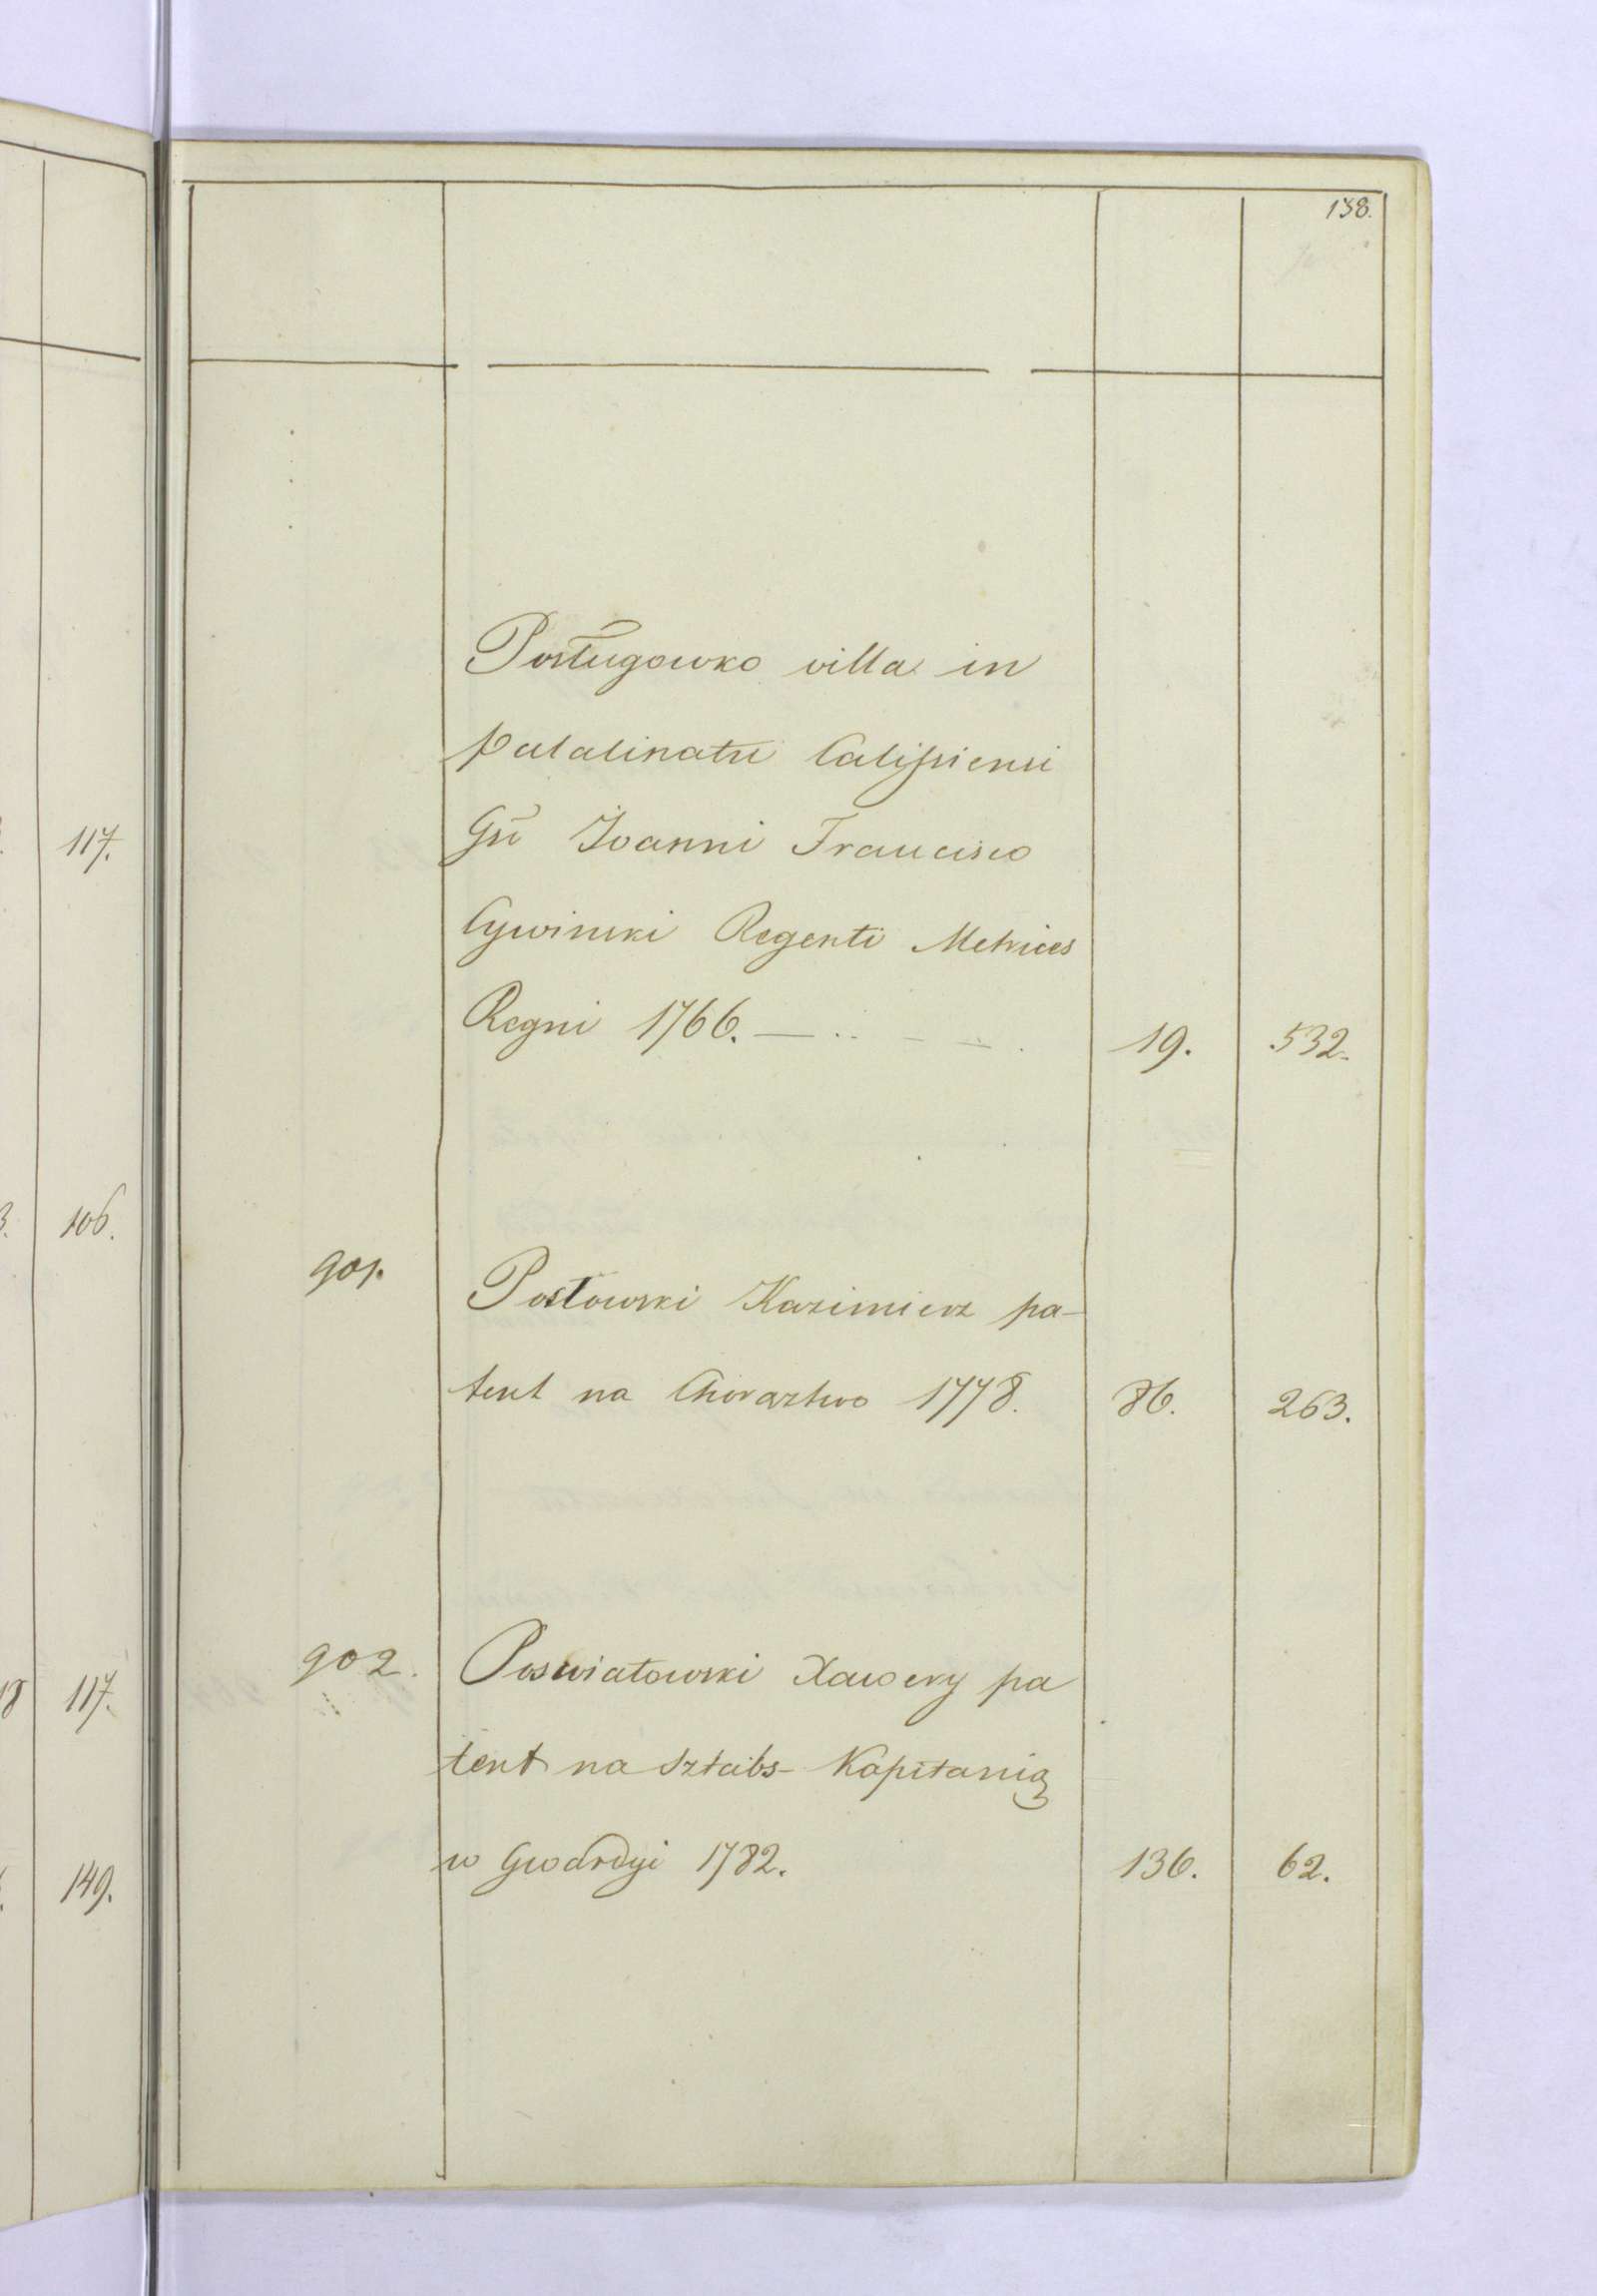 138.
Posługowko villa in
palatinatu Calissiensi
Gū Ioanni Francisco
Cywinski Regenti Metrices
Regni 1766. — 19. 532.
901. Postowski Kazimierz pa-
tent na Chorąztwo 1778. 86. 263.
902. Poswiatowski Xawery pa
tent na Sztabs- Kapitanią
w Gwardyi 1782. 136. 62.
117.
3. 106.
18 117.
149.